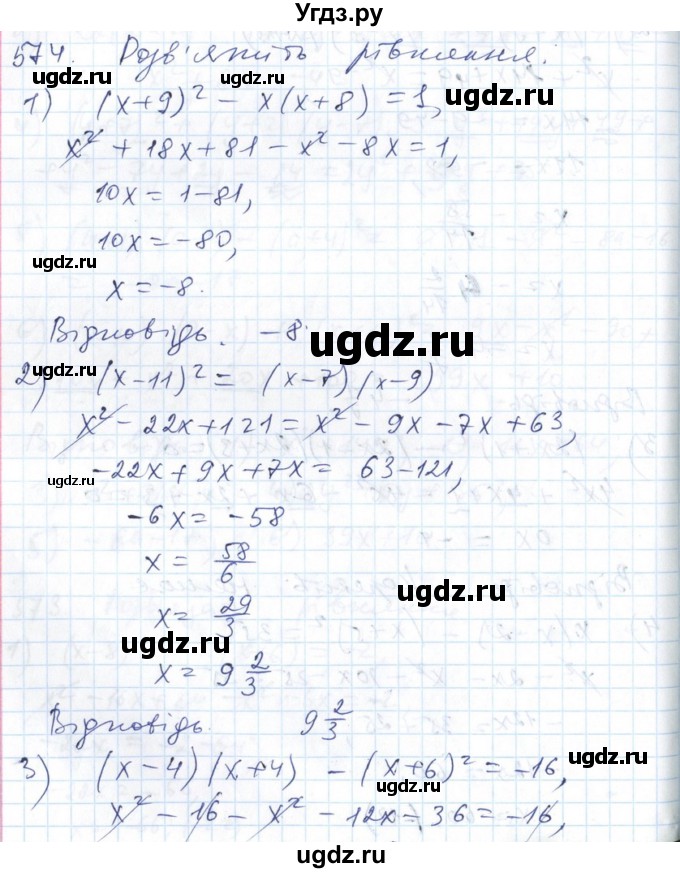 Угдз.ру
574. Розв'яжіть рівняння:
1) (x+9)² - x(x+8) = 1,
ugdz.ru
x² + 18x + 81 - x² - 8x = 1,
ugdz.ru
10x = 1-81,
10x = -80,
ugdz.ru
x = -8.
Відповідь. -8.
ugdz.ru
2) (x-11)² = (x-7)(x-9)
x² - 22x + 121 = x² - 9x - 7x + 63,
-22x + 9x + 7x = 63-121,
ugdz.ru
-6x = -58
x = 58/6
ugdz.ru
x = 29/3
ugdz.ru
x = 9 2/3
ugdz.ru
Відповідь. 9 2/3
3) (x-4)(x+4) - (x+6)² = -16,
ugdz.ru
x² - 16 - x² - 12x - 36 = -16,
ugdz.ru